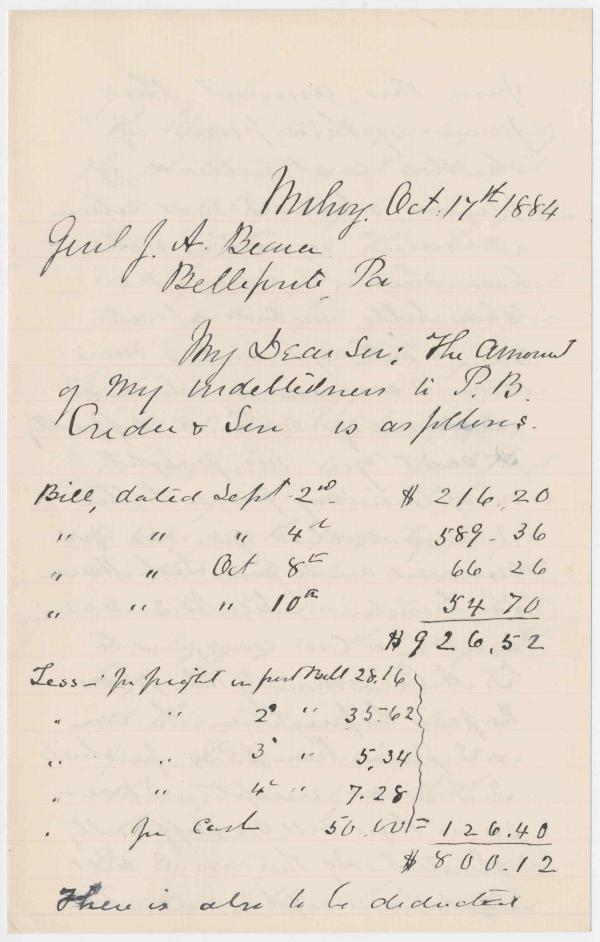 Milroy, Oct. 17th 1884
Genl J. A. Beaver
Bellefonte, Pa
My Dear Sir; The amount
of my indebtedness to P. B.
Crider & Son is as follows.
Bill, dated Sept. 2nd $ 216.20
" " " 4th 589.36
" " Oct 8th 66 26
" " " 10th 54 70
$926.52
Less – for freight on first Bill 28.16
" " 2d " 35.62
" " 3d " 5.34
" " 4th " 7.28
" for cash 50.00 = 126.40
$ 800.12
There is also to be deducted